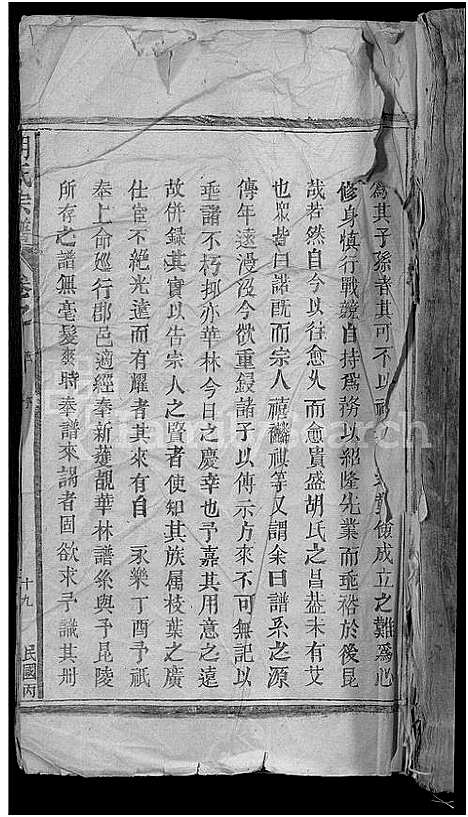 為其子孫者其可不以祖
成立之難為心
修身慎行戰兢自持為務以紹隆先業而垂裕於後昆
哉若然自今以往愈久而愈貴盛胡氏之昌葢未有艾
也眾皆曰諾既而宗人禧麟祺等又謂余曰譜系之源
傳年遠漫沒今欲重鋟諸子以傳示方來不可無記以
垂諸不朽抑亦華林今日之慶幸也予嘉其用意之遠
故併録其實以告宗人之賢者使知其族属枝葉之廣
仕宦不絶光遠而有耀者其來有自 永樂丁酉予祇
奉上命廵行郡邑適經奉新獲覩華林譜系與予昆陵
所存之譜無毫髮爽時奉譜來謁者固欲求予識其册
胡氏宗譜
卷之
十九
民國丙